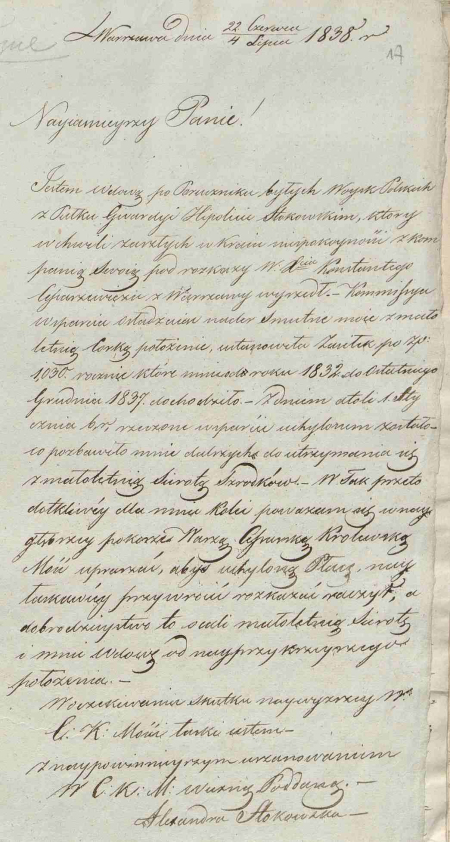 Warszawa dnia 22 Czerwca / 4 Lipca 1838. r
17
Nayiaśnieyszy Panie!
Jestem Wdową po Poruczniku byłych Woysk Polskich
z Pułku Gwardyi Hipolicie Stokowskim, który
w chwili zaszłych w kraiu niespokoyności z kom
panią Swoią pod rozkazy W. Xcia Konstantego
Cesarzewicza z Warszawy wyszedł. – Kommissya
wsparcia osładzaiąc nader Smutne moie z mało
letnią Corką położenie, ustanowiła Zasiłek po Zł:
1,030. rocznie które mnie od roku 1832. do Ostatniego
Grudnia 1837. dochodziło. – Z dniem atoli 1. Sty
cznia b.r. rzeczone wsparcie uchylonem zostało
co pozbawiło mnie dalszych do utrzymania się
z małoletnią Sierotą Srodków. – W Tak przeto
dotkliwéy dla mnie Kolei poważam się w nay
głębszéy pokorze Waszą Cesarską Królewską
Mość upraszać, abyś uchyloną Płacę, nay
łaskawiéy przywrócić rozkazać raczył, a
dobrodzieystwo to ocali małoletnią Sierotę
i mnie Wdowę od nayprzykrzeyszego
położenia. –
W oczekiwaniu skutku naywyższéy W.
C: K: Mości łaski iestem –
z naypowinnieyszym uszanowaniem
W. C. K.: M: wierną Poddaną. –
Alexandra Stokowska –